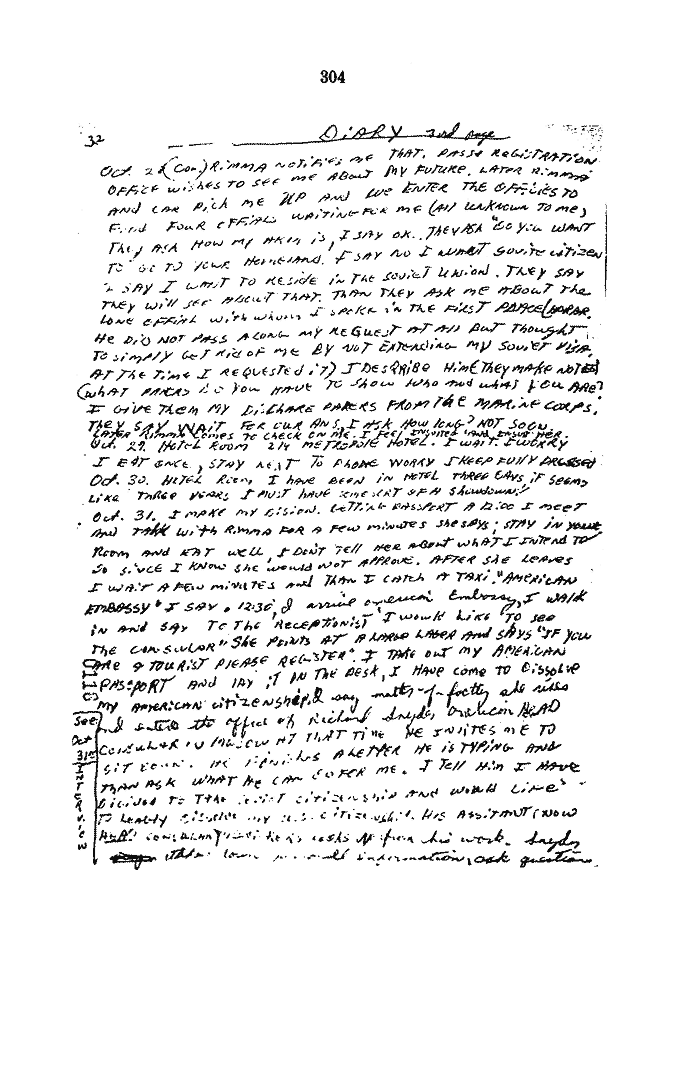 304
32
DIARY 3rd page
Oct. 28 (con) RIMMA NOTIFIES ME THAT, PASS & REGISTRATION
OFFICE WISHES TO SEE ME ABOUT MY FUTURE. LATER RIMMA
AND CAR PICK ME UP AND WE ENTER THE OFFICIES TO
FIND FOUR OFFIALS WAITING FOR ME (All UNKNOWN TO ME)
THEY ASK HOW MY ARM IS, I SAY OK. THEY ASK "DO YOU WANT
TO GO TO YOUR HOMELAND. I SAY NO I WANT SOVITE CITIZEN
I SAY I WANT TO RESIDE IN THE SOVIET UNION. THEY SAY
THEY WILL SEE ABOUT THAT. THAN THEY ASK ME ABOUT THE
LONE OFFIAL WITH WHOM I SPOKE IN THE FIRST PLACE
HE DID NOT PASS ALONG MY REQUEST AT All BUT THOUGHT
TO SIMPLY GET RID OF ME BY NOT EXTENDING MY SOVIET VISA.
AT THE TIME I REQUESTED IT) I DESCRIBE HIM (THEY MAKE NOTES)
(WHAT PAPERS DO YOU HAVE TO SHOW WHO AND WHAT YOU ARE?
I GIVE THEM MY DICHARE PAPERS FROM THE MARINE CORPS.
THEY SAY WAIT FOR OUR ANS. I ASK HOW LONG? NOT SOON
LATER RIMMA COMES TO CHECK ON ME. I FEEL INSULTED AND INSULT HER
Oct. 29. HOTEL ROOM 214 METROPOLE HOTEL. I WAIT. I WORRY
I EAT ONCE, STAY NEXT TO PHONE WORRY I KEEP FULLY DRESSED
Oct. 30. HOTEL ROOM I HAVE BEEN IN HOTEL THREE DAYS, IT SEEMS
LIKE THREE YEARS I MUST HAVE SOME SORT OF A SHOWDOWN!
Oct. 31. I MAKE MY DISION. GETTING PASSPORT A 12:00 I MEET
AND TALK WITH RIMMA FOR A FEW MINUTES SHE SAYS: STAY IN YOUR
ROOM AND EAT WELL, I DON'T TELL HER ABOUT WHAT I INTEND TO
DO SINCE I KNOW SHE WOULD NOT APPROVE. AFTER SHE LEAVES
I WAIT A FEW MINUTES AND THAN I CATCH A TAXI, "AMERICAN
EMBASSY" I SAY. 12:30, I arrive american Embassy, I WALK
IN AND SAY TO THE RECEPTIONIST "I WOULD LIKE TO SEE
THE CONSULAR" SHE POINTS AT A LARGE LAGER AND SAYS "IF YOU
ARE A TOURIST PLEASE REGISTER". I TAKE OUT MY AMERICAN
PASSPORT AND LAY IT ON THE DESK, I HAVE COME TO DISSOLVE
MY AMERICAN CITIZENSHIP, I say matter-of-factly she rises
and enters the office of Richard Snyder american HEAD
CONSULAR IN MOSCOW AT THAT TIME HE INVITES ME TO
SIT DOWN. HE FINISHES A LETTER HE IS TYPING AND
THAN ASK WHAT HE CAN DO FER ME. I TELL HIM I HAVE
DICIDED TO TAKE SOVIET CITIZENSHIP AND WOULD LIKE
TO LEAGLY DISSOLVE MY U.S. CITIZENSHIP. HIS ASSITANT (NOW
HEAD CONSULAR) looks up from his work. Snyder
takes down personall information, ask questions.
0118
See
Oct
31st
INTERVIEW